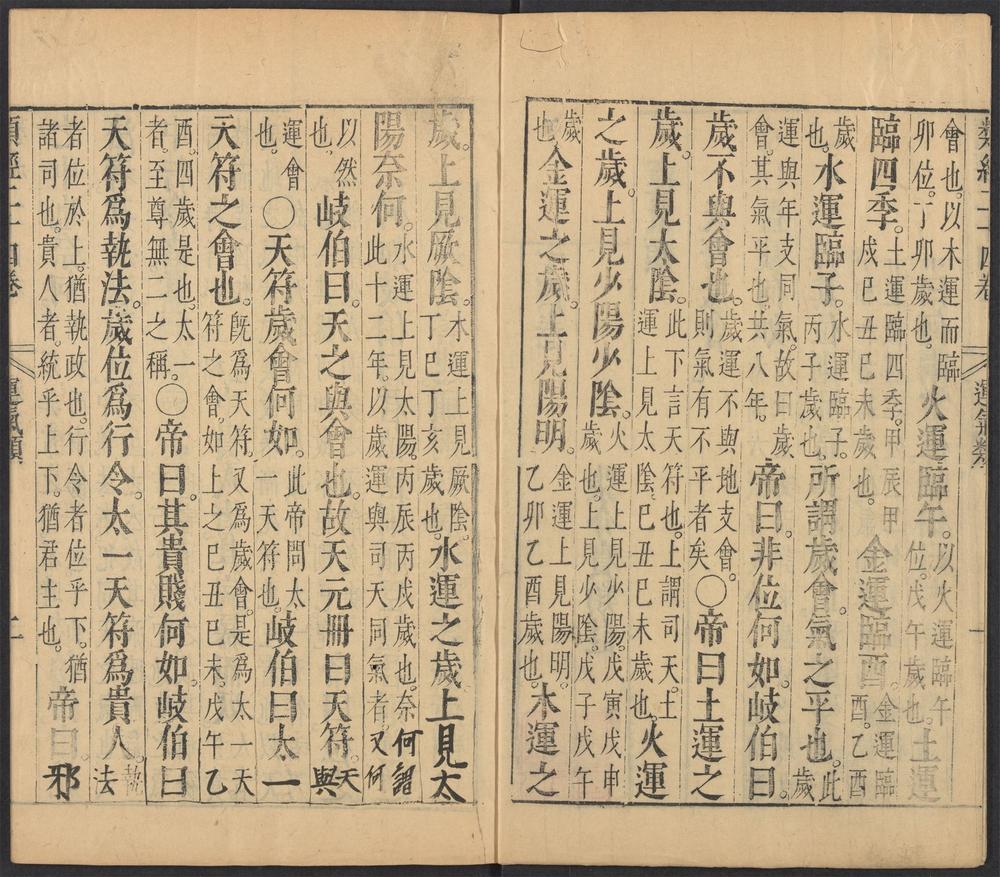 類經二十四卷 運氣類 一
會也。以木運而臨卯位。丁卯歲也。火運臨午。以火運臨午位。戊午歲也。土運
臨四季。土運臨四季。甲辰甲戌己丑己未歲也。金運臨酉。金運臨酉。乙酉
歲也。水運臨子。水運臨子。丙子歲也。所謂歲會。氣之平也。此歲
運與年支同氣。故曰歲會。其氣平也。共八年。帝曰。非位何如。岐伯曰。
歲不與會也。歲運不與地支會。則氣有不平者矣。〇帝曰土運之
歲。上見太陰。此下言天符也。上謂司天。土運上見太陰。己丑己未歲也。火運
之歲。上見少陽少陰。火運上見少陽。戊寅戊申歲也。上見少陰。戊子戊午
歲也。金運之歲。上見陽明。金運上見陽明。乙卯乙酉歲也。木運之
歲。上見厥陰。木運上見厥陰。丁巳丁亥歲也。水運之歲上見太
陽奈何。水運上見太陽。丙辰丙戌歲也。奈何謂此十二年。以歲運與司天同氣者又何
以然也。岐伯曰。天之與會也。故天元冊曰天符。天與
運會也。〇天符歲會何如。此帝問太一天符也。岐伯曰太一
天符之會也。旣爲天符。又爲歲會。是爲太一天符之會。如上之己丑己未。戊午乙
酉。四歲是也。太一者。至尊無二之稱。〇帝曰。其貴賤何如。岐伯曰
天符爲執法。歲位爲行令。太一天符爲貴人。執法
者位於上。猶執政也。行令者位乎下。猶諸司也。貴人者。統乎上下。猶君主也。帝曰。邪
類經二十四卷 運氣類 二